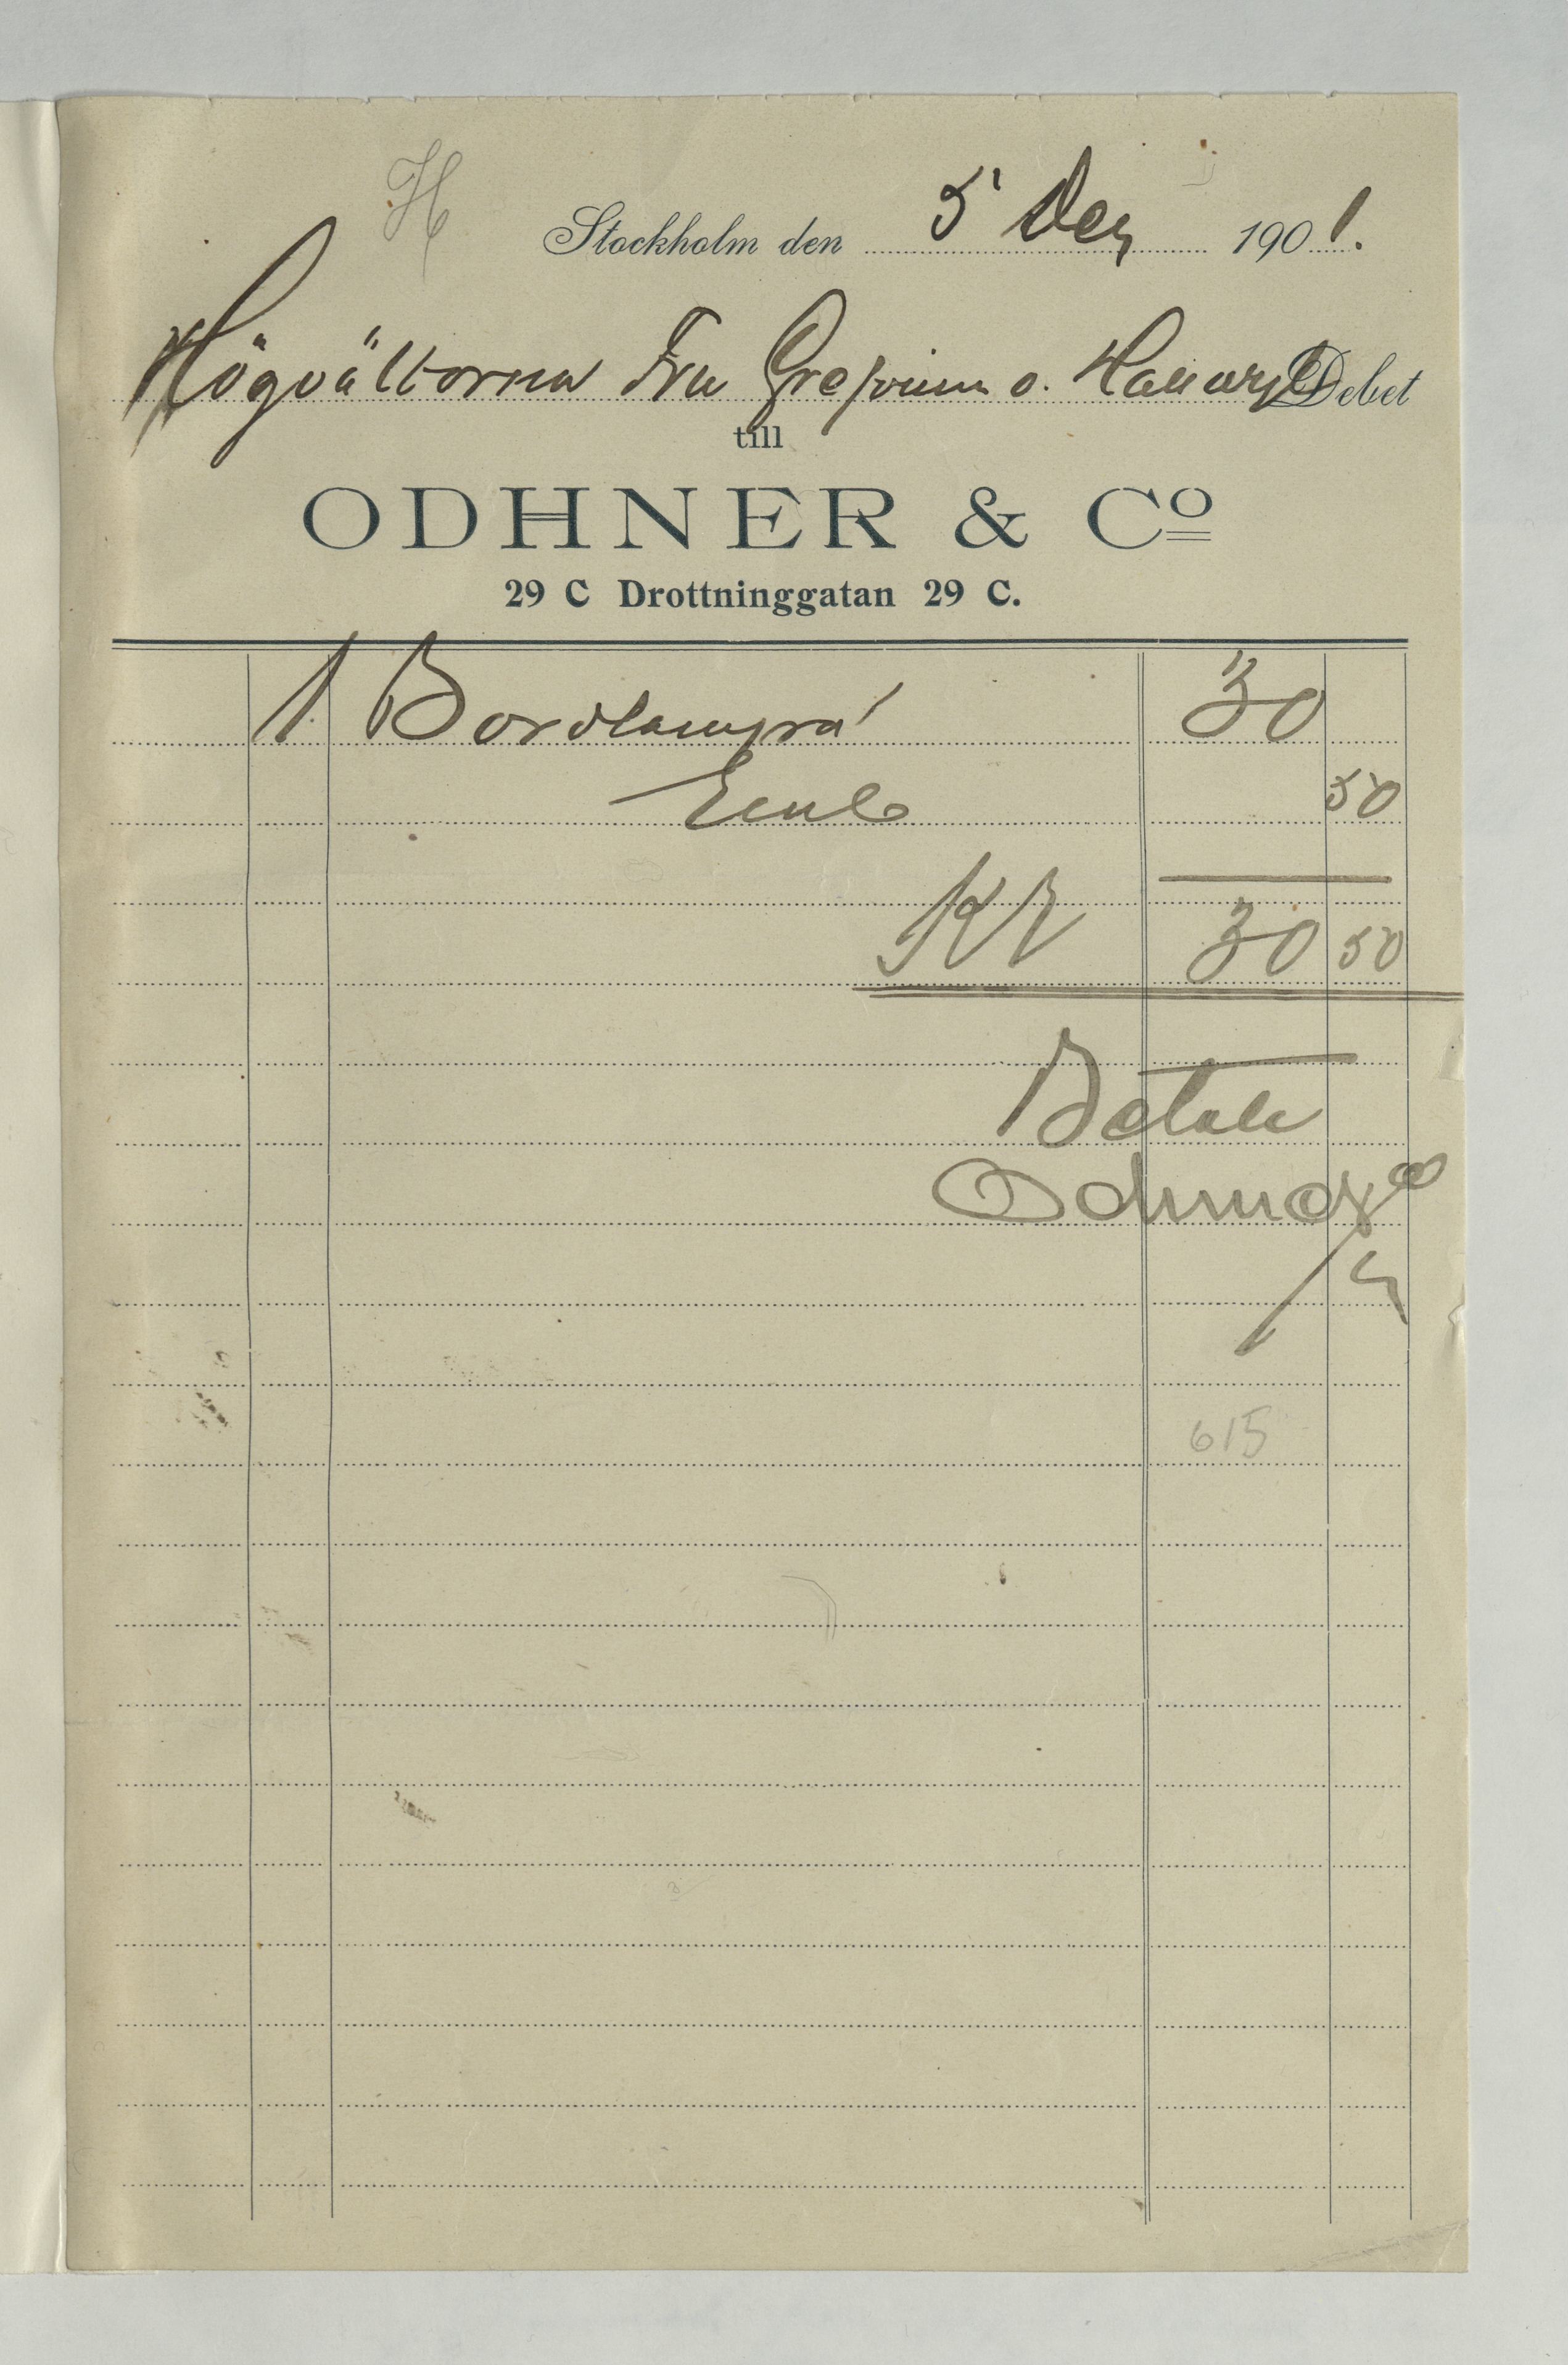 H
Stockholm den 5 Dec 1901.
Högvälborna Fru Grefvinna v. Hallwyl Debet
till
ODHNER & Co
29 C Drottninggatan 29 C.
1 Bordlampa 30
Emb 50
KR 30 50
Betalt
Odhner & Co
615